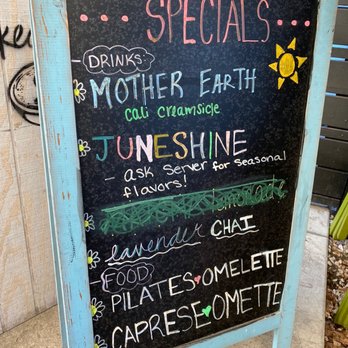 SPECIALS
DRINKS
MOTHER EARTH
cali creamsicle
JUNESHINE
- ask server for seasonal
flavors!
lavender CHAI
FOOD
PILATES OMELETTE
CAPRESE OMETTE